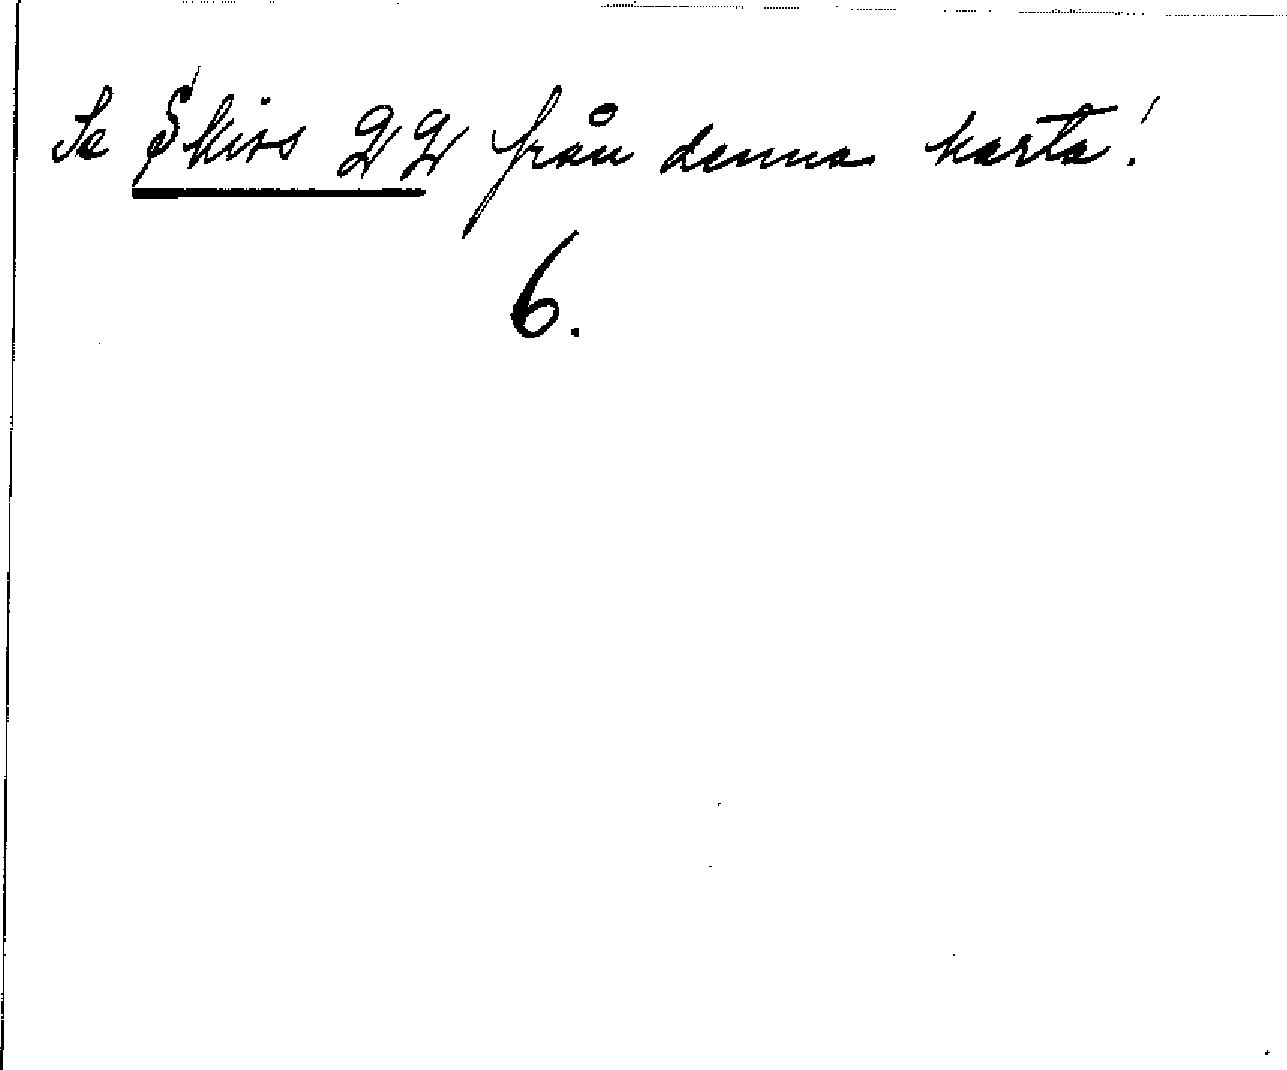 Se Skirs 22 från denna karta!
6.